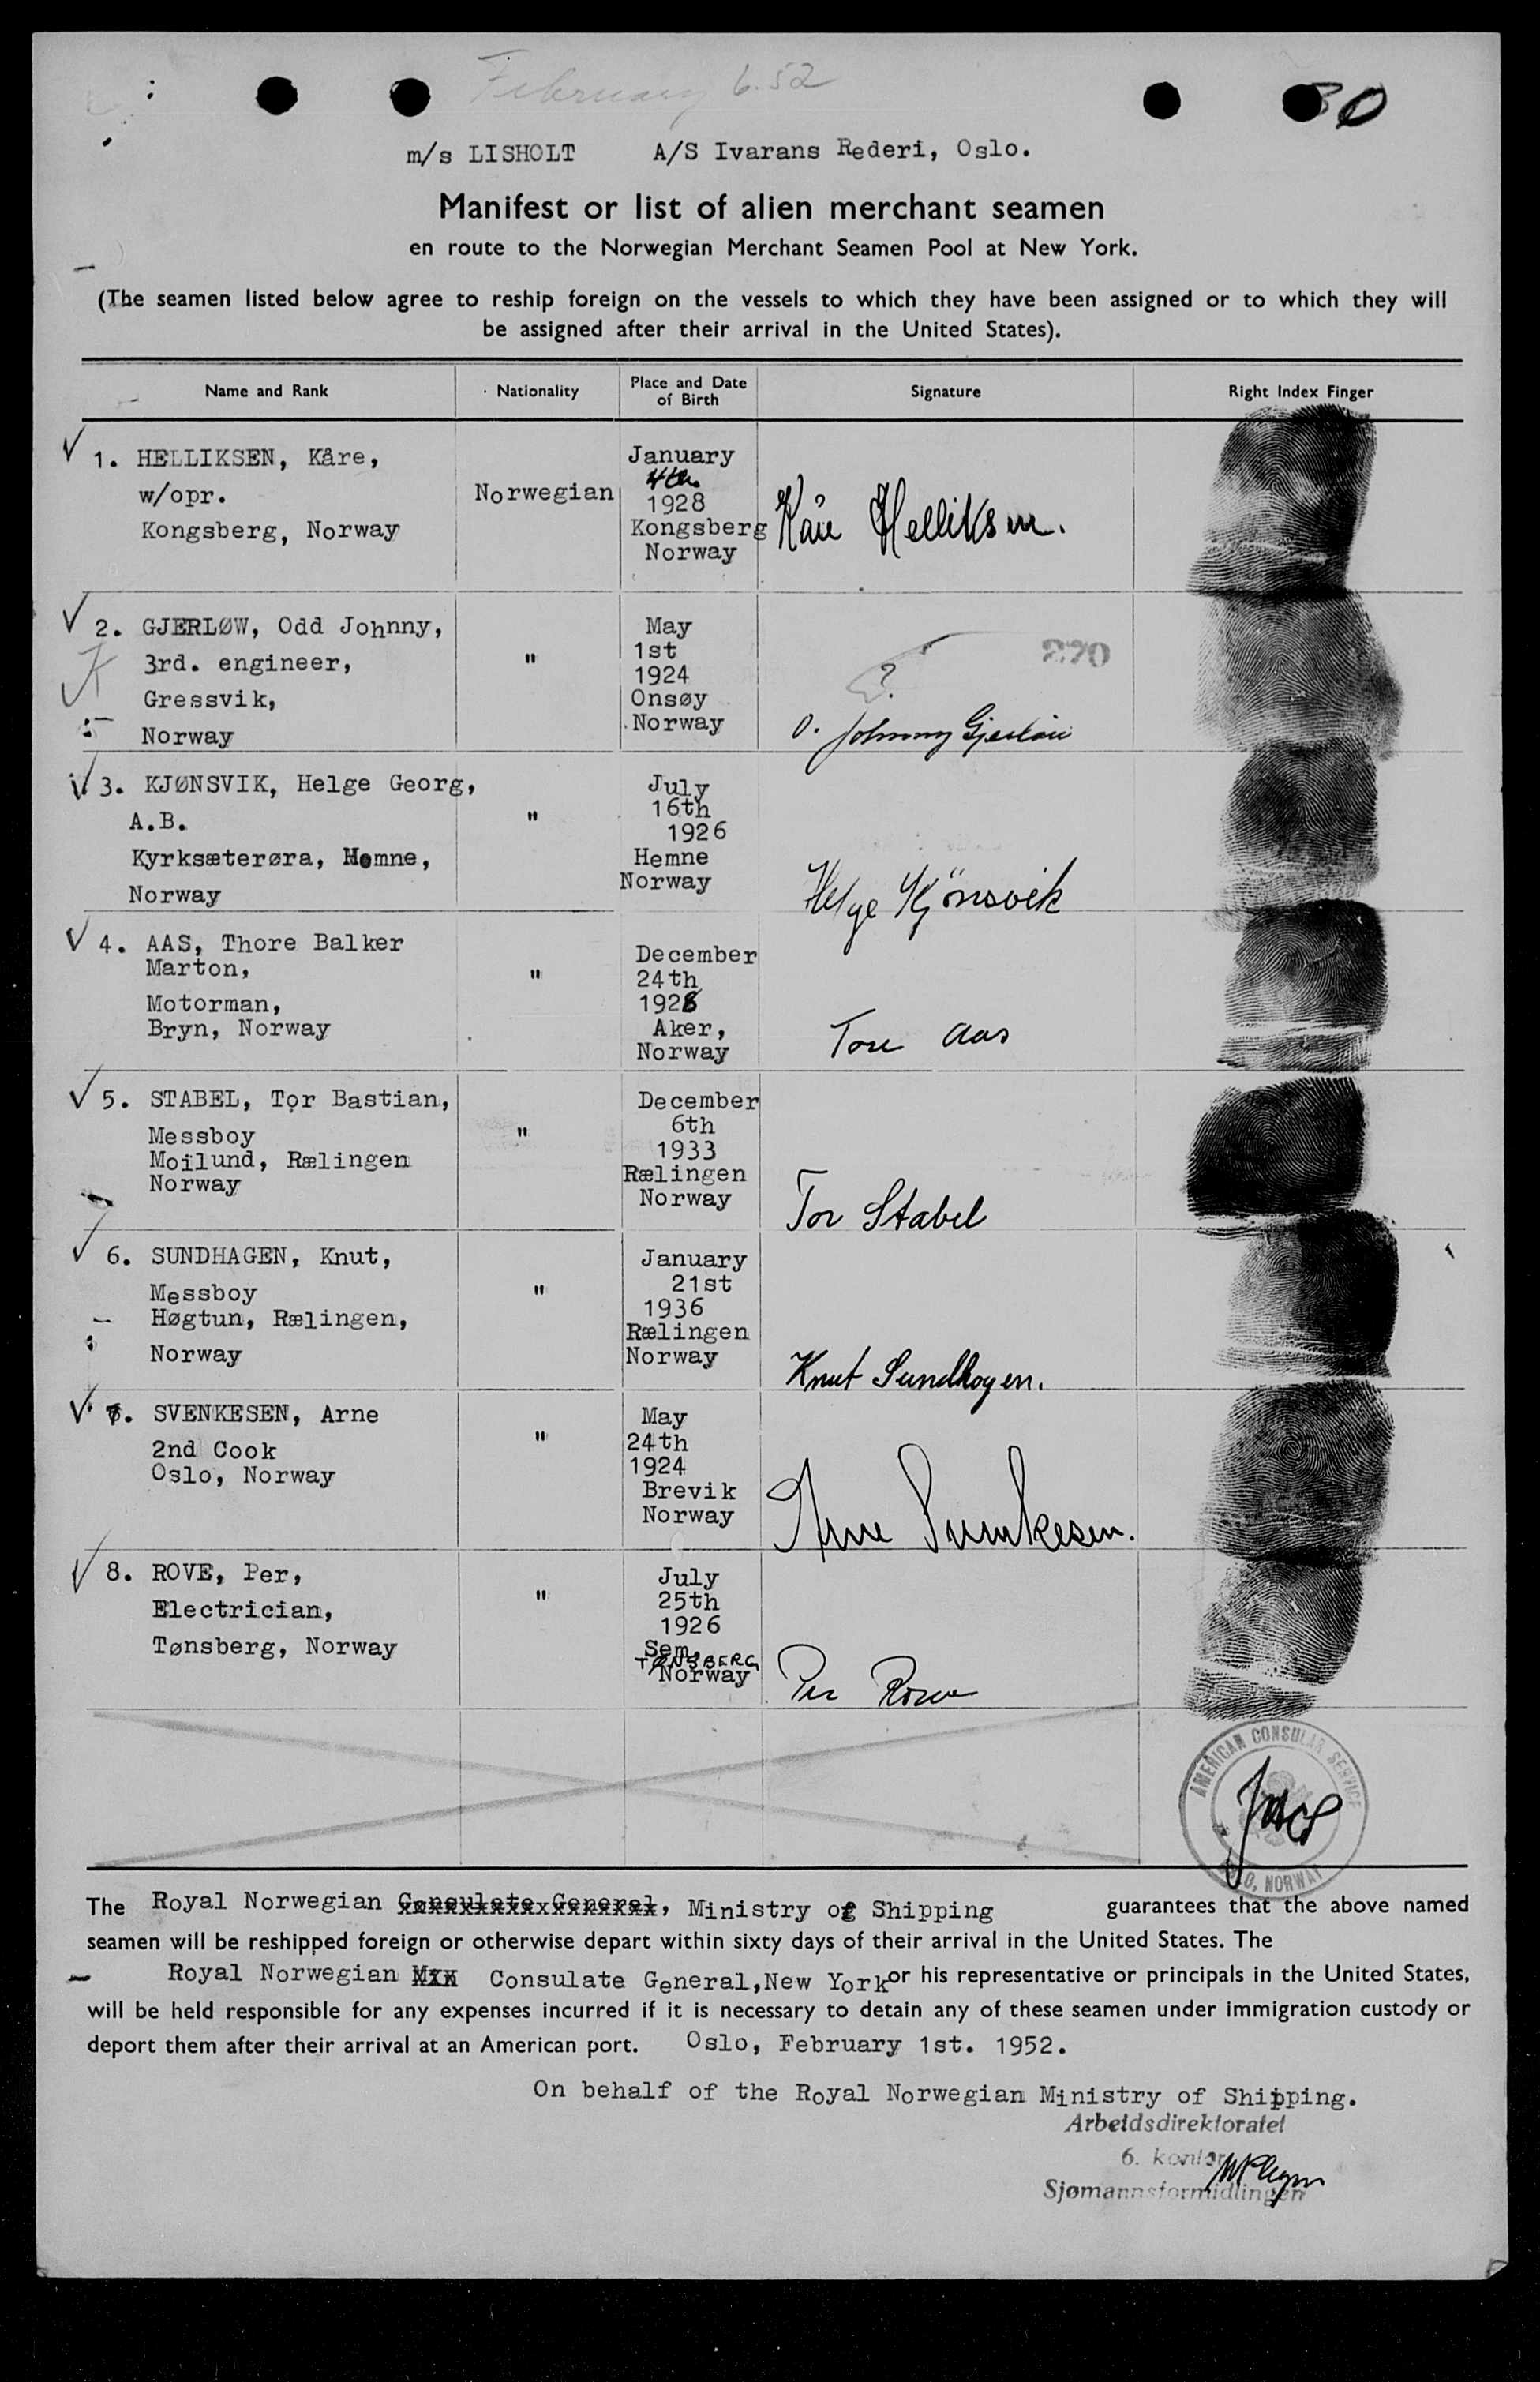 February 6.52
30
m/s LISHOLT A/S Ivarans Rederi, Oslo.
Manifest or list of alien merchant seamen
en route to the Norwegian Merchant Seamen Pool at New York.
(The seamen listed below agree to reship foreign on the vessels to which they have been assigned or to which they will
be assigned after their arrival in the United States).
Name and Rank Nationality Place and Date of Birth Signature Right Index Finger
1. HELLIKSEN, Kåre,
w/opr.
Kongsberg, Norway
Norwegian
January
4th.
1928
Kongsberg
Norway
Kåre Helliksen.
2. GJERLØW, Odd Johnny,
3rd. engineer,
Gressvik,
Norway
"
May
1st
1924
Onsøy
Norway
270
?
O. Johnny Gjerløw
3. KJØNSVIK, Helge Georg,
A.B.
Kyrksæterøra, Hemne,
Norway
"
July
16th
1926
Hemne
Norway
Helge Kjönsvik
4. AAS, Thore Balker
Marton,
Motorman,
Bryn, Norway
"
December
24th
1928
Aker,
Norway
Tore Aas
5. STABEL, Tor Bastian,
Messboy
Moilund, Rælingen
Norway
"
December
6th
1933
Rælingen
Norway
Tor Stabel
6. SUNDHAGEN, Knut,
Messboy
Høgtun, Rælingen,
Norway
"
January
21st
1936
Rælingen
Norway
Knut Sundhagen.
7. SVENKESEN, Arne
2nd Cook
Oslo, Norway
"
May
24th
1924
Brevik
Norway
Arne Svenkesen.
8. ROVE, Per,
Electrician,
Tønsberg, Norway
"
July
25th
1926
Sem,
TØNSBERG
Norway
Per Rove
AMERICAN CONSULAR SERVICE
OSLO, NORWAY
The Royal Norwegian Consulate General, Ministry of Shipping guarantees that the above named
seamen will be reshipped foreign or otherwise depart within sixty days of their arrival in the United States. The
Royal Norwegian Consulate General, New York or his representative or principals in the United States,
will be held responsible for any expenses incurred if it is necessary to detain any of these seamen under immigration custody or
deport them after their arrival at an American port. Oslo, February 1st. 1952.
On behalf of the Royal Norwegian Ministry of Shipping.
Arbeidsdirektoratet
6. kontor
Sjømannsformidlingen